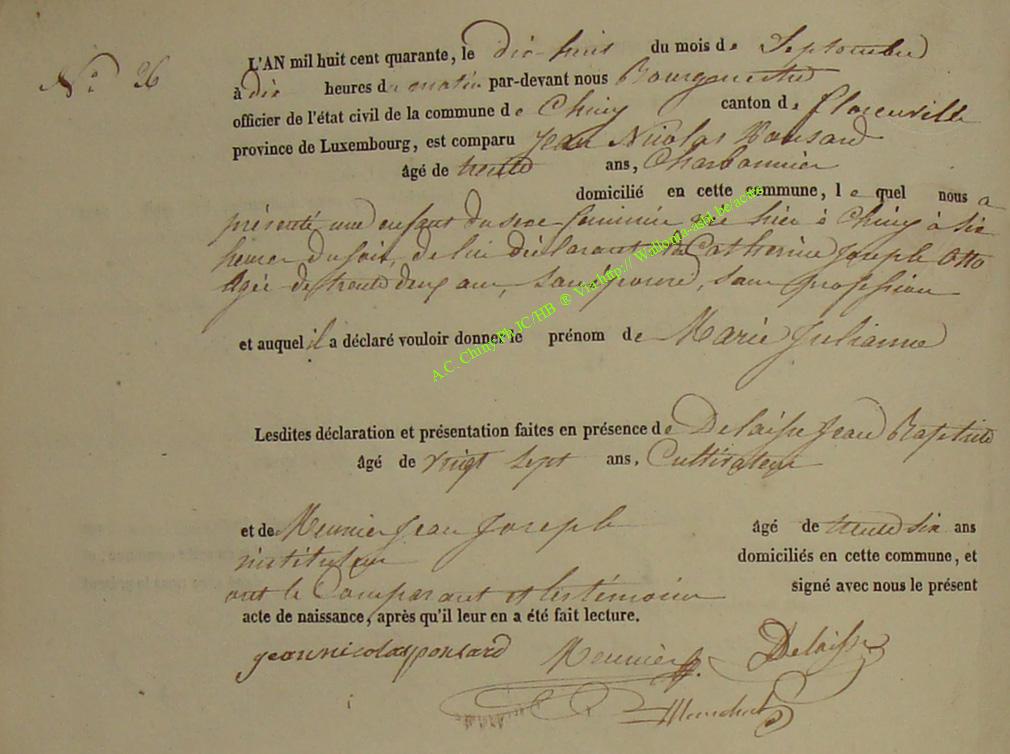 N.° 26
L'AN mil huit cent quarante, le dix-huit du mois de Septembre
à dix heures du matin par-devant nous Bourgmestre
officier de l'état civil de la commune de Chiny canton de florenville
province de Luxembourg, est comparu Jean Nicolas Ponsard
âgé de trente ans, Charbonnier
domicilié en cette commune, le quel nous a
présenté une enfant du sexe feminin née hier à Chiny à six
heures du soir, de lui déclarant et de Catherine Joseph Otto
agée de trente deux ans, son épouse, sans profession
et auquel il a déclaré vouloir donner le prénom de Marie Julianne
Lesdites déclaration et présentation faites en présence de Delaisse Jean Baptiste
âgé de vingt sept ans, Cultivateur
et de Meunier Jean Joseph âgé de trente six ans
instituteur domiciliés en cette commune, et
ont le Comparant et les témoins signé avec nous le présent
acte de naissance, après qu'il leur en a été fait lecture.
jean nicolas ponsard Meunier JJ. Delaisse
A.C. Chiny Ph JC/HB ® Via http:// Wallonia-asbl.be/actes